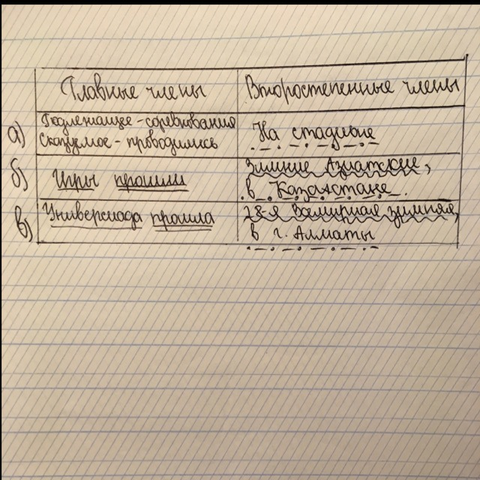 Главные члены Второстепенные члены
а) Подлежащее - соревнования
Сказуемое - проводились
На стадионе
б) Игры прошли
Зимние Азиатские,
в Казахстане.
в) Универсиада прошла
28-я Всемирная зимняя,
в г. Алматы